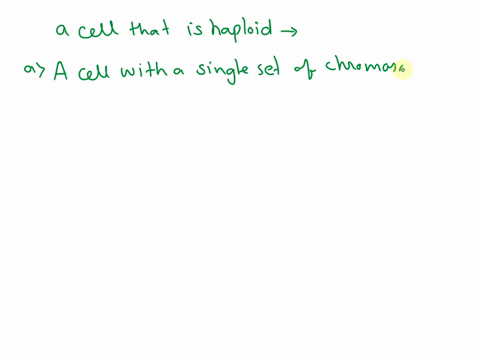 a cell that is haploid →
a> A cell with a single set of chromoso